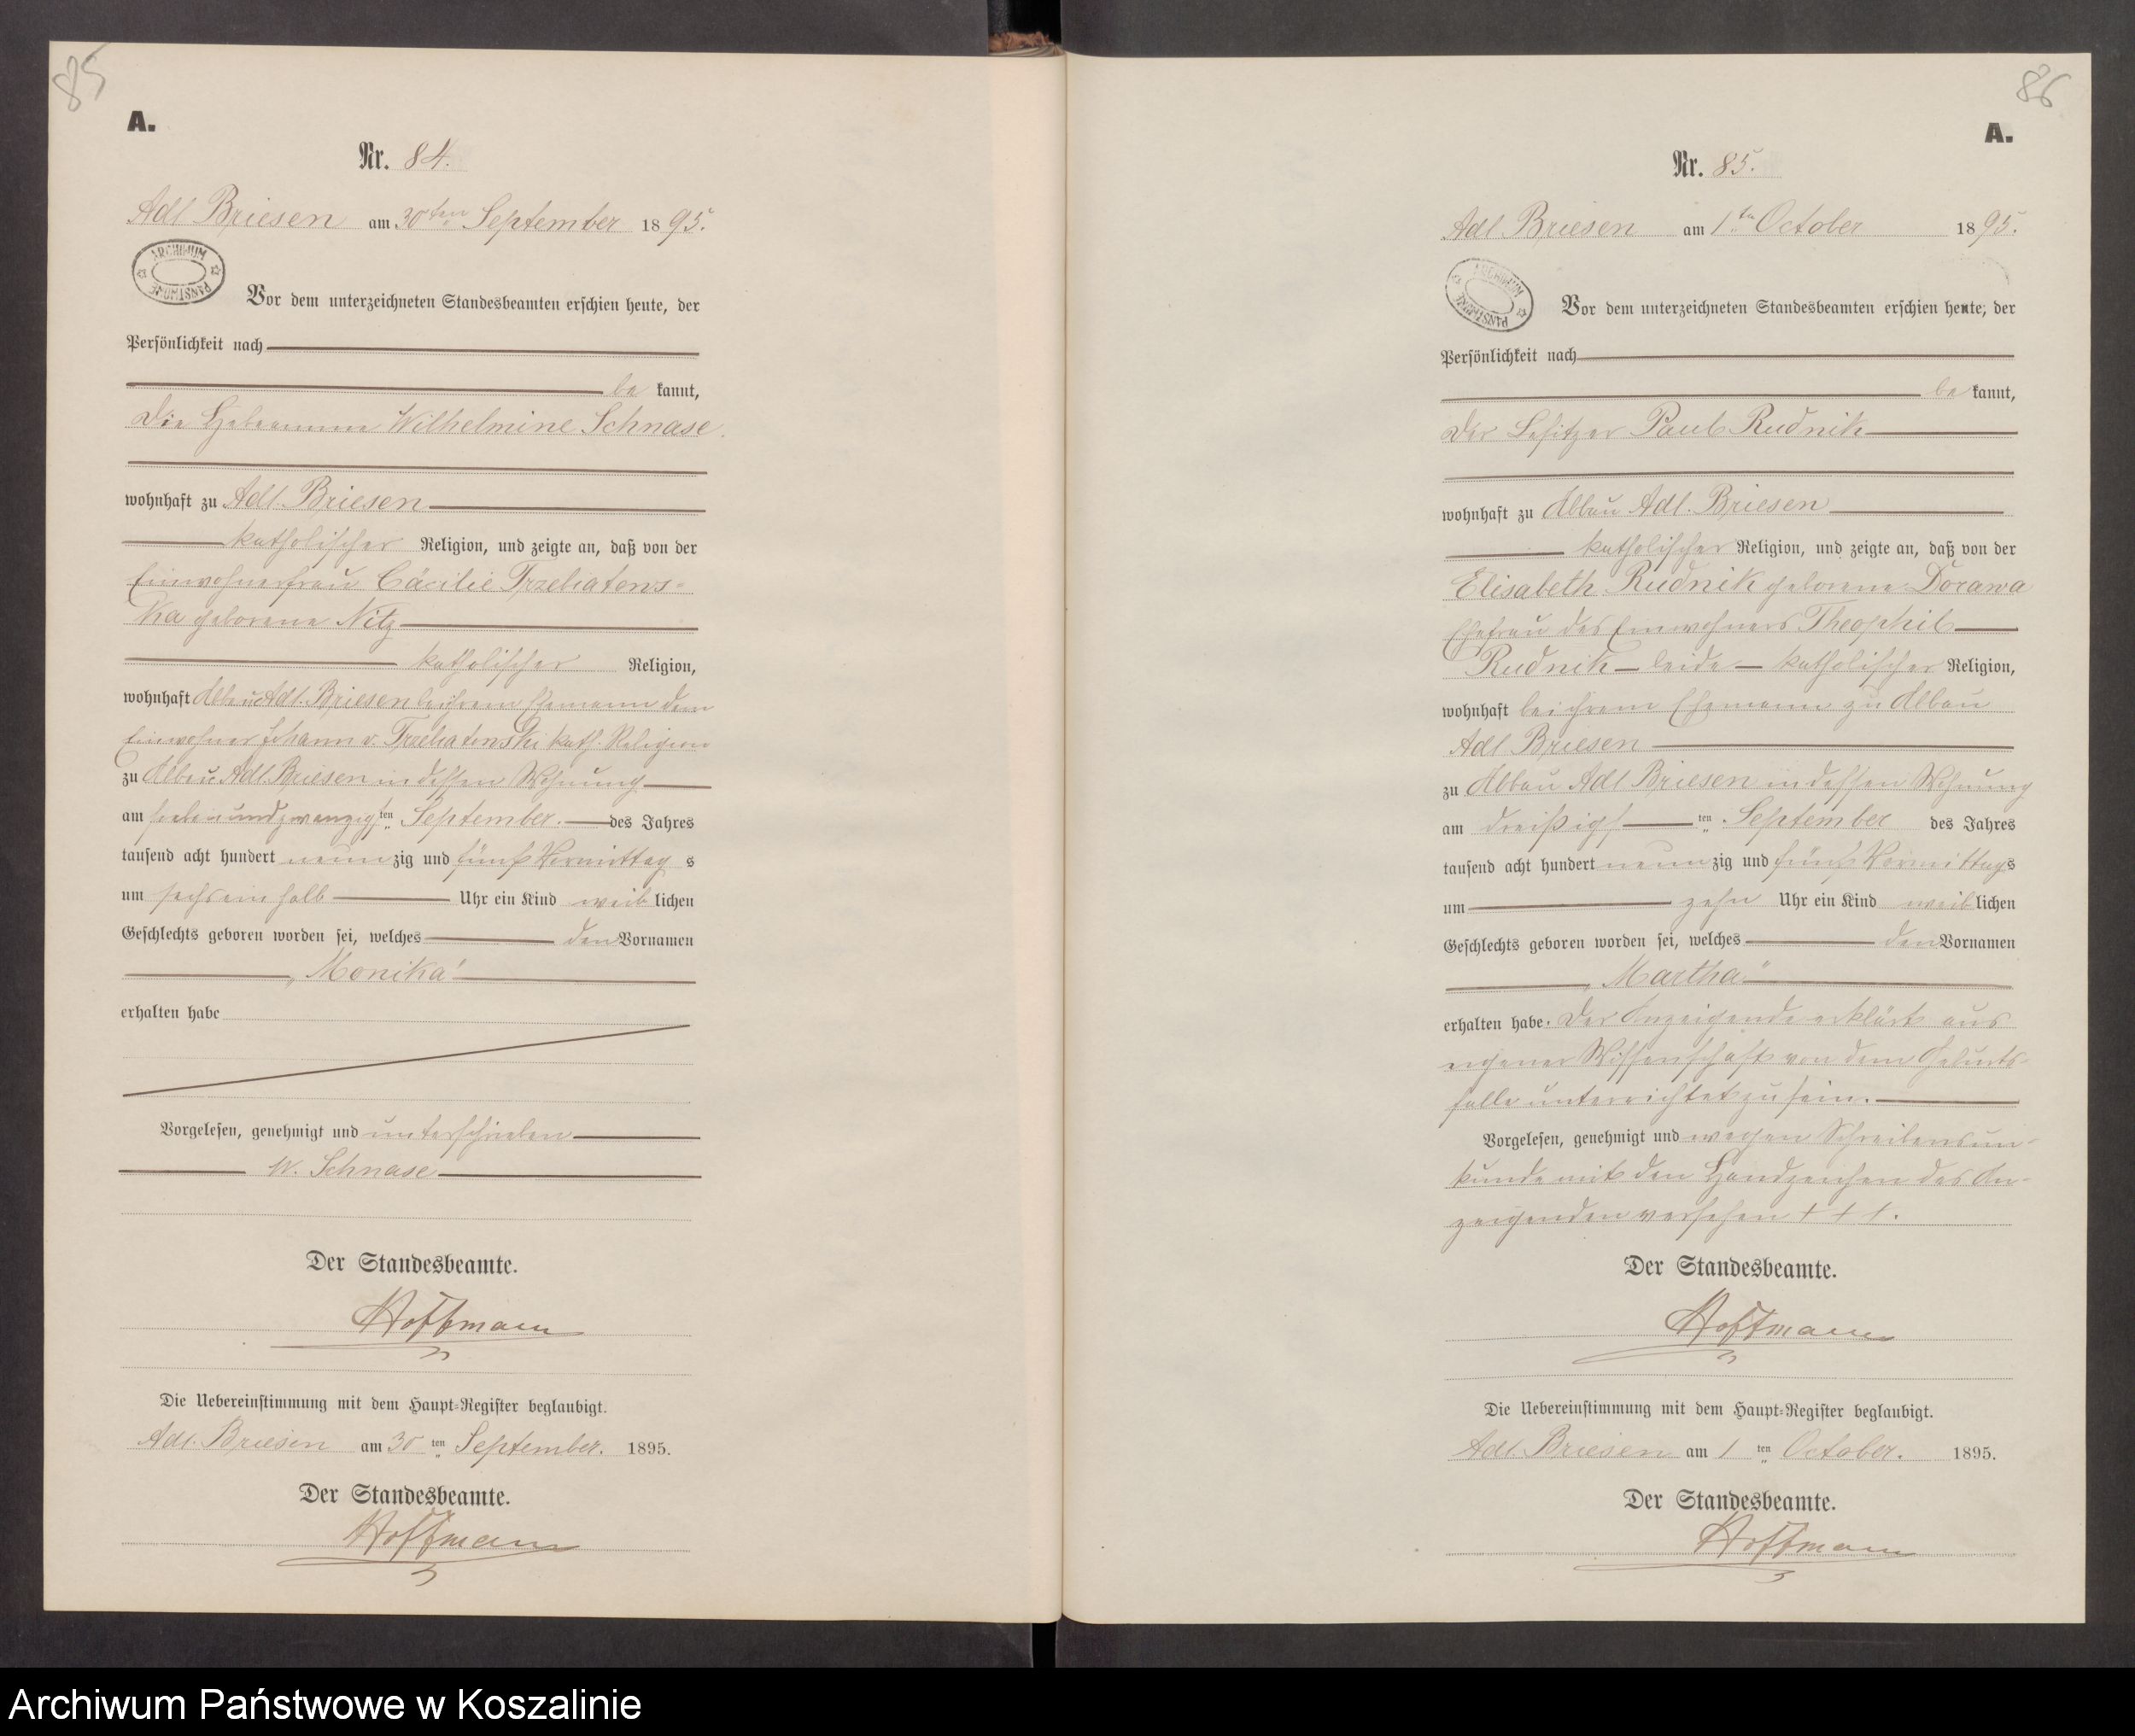 85
A.
Nr. 84.
Adl. Briesen am 30ten September 1895.
ARCHIWUM PAŃSTWOWE
Vor dem unterzeichneten Standesbeamten erschien heute, der
Persönlichkeit nach
be kannt,
die Hebeamme Wilhelmine Schnase,
wohnhaft zu Adl. Briesen
katholischer Religion, und zeigte an, daß von der
Einwohnerfrau Cäcilie Trzebiatows-
ka geborene Nitz
katholischer Religion,
wohnhaft Abbau Adl. Briesen bei ihrem Ehemann dem
Einwohner Johann v. Trzebiatowski kath. Religion
zu Abbau Adl. Briesen in dessen Wohnung
am siebenundzwanzigten September des Jahres
tausend acht hundert neunzig und fünf Vormittags
um sechseinhalb Uhr ein Kind weiblichen
Geschlechts geboren worden sei, welches den Vornamen
„Monika“
erhalten habe
Vorgelesen, genehmigt und unterschrieben
W. Schnase
Der Standesbeamte.
Hoffmann
Die Uebereinstimmung mit dem Haupt-Register beglaubigt.
Adl. Briesen am 30ten September. 1895.
Der Standesbeamte.
Hoffmann
86
A.
Nr. 85.
Adl. Briesen am 1ten October 1895.
ARCHIWUM PAŃSTWOWE
Vor dem unterzeichneten Standesbeamten erschien heute, der
Persönlichkeit nach
be kannt,
der Besitzer Paul Rudnik
wohnhaft zu Abbau Adl. Briesen
katholischer Religion, und zeigte an, daß von der
Elisabeth Rudnik geborene Dorawa
Ehefrau des Einwohners Theophil
Rudnik – beide – katholischer Religion,
wohnhaft bei ihrem Ehemann zu Abbau
Adl. Briesen
zu Abbau Adl. Briesen in dessen Wohnung
am dreißigsten September des Jahres
tausend acht hundert neunzig und fünf Vormittags
um zehn Uhr ein Kind weiblichen
Geschlechts geboren worden sei, welches den Vornamen
„Martha“
erhalten habe. Der Anzeigende erklärt aus
eigener Wissenschaft von dem Geburts-
falle unterrichtet zu sein.
Vorgelesen, genehmigt und wegen Schreibensun-
kunde mit den Handzeichen des An-
zeigenden versehen + + +.
Der Standesbeamte.
Hoffmann
Die Uebereinstimmung mit dem Haupt-Register beglaubigt.
Adl. Briesen am 1ten October. 1895.
Der Standesbeamte.
Hoffmann
Archiwum Państwowe w Koszalinie